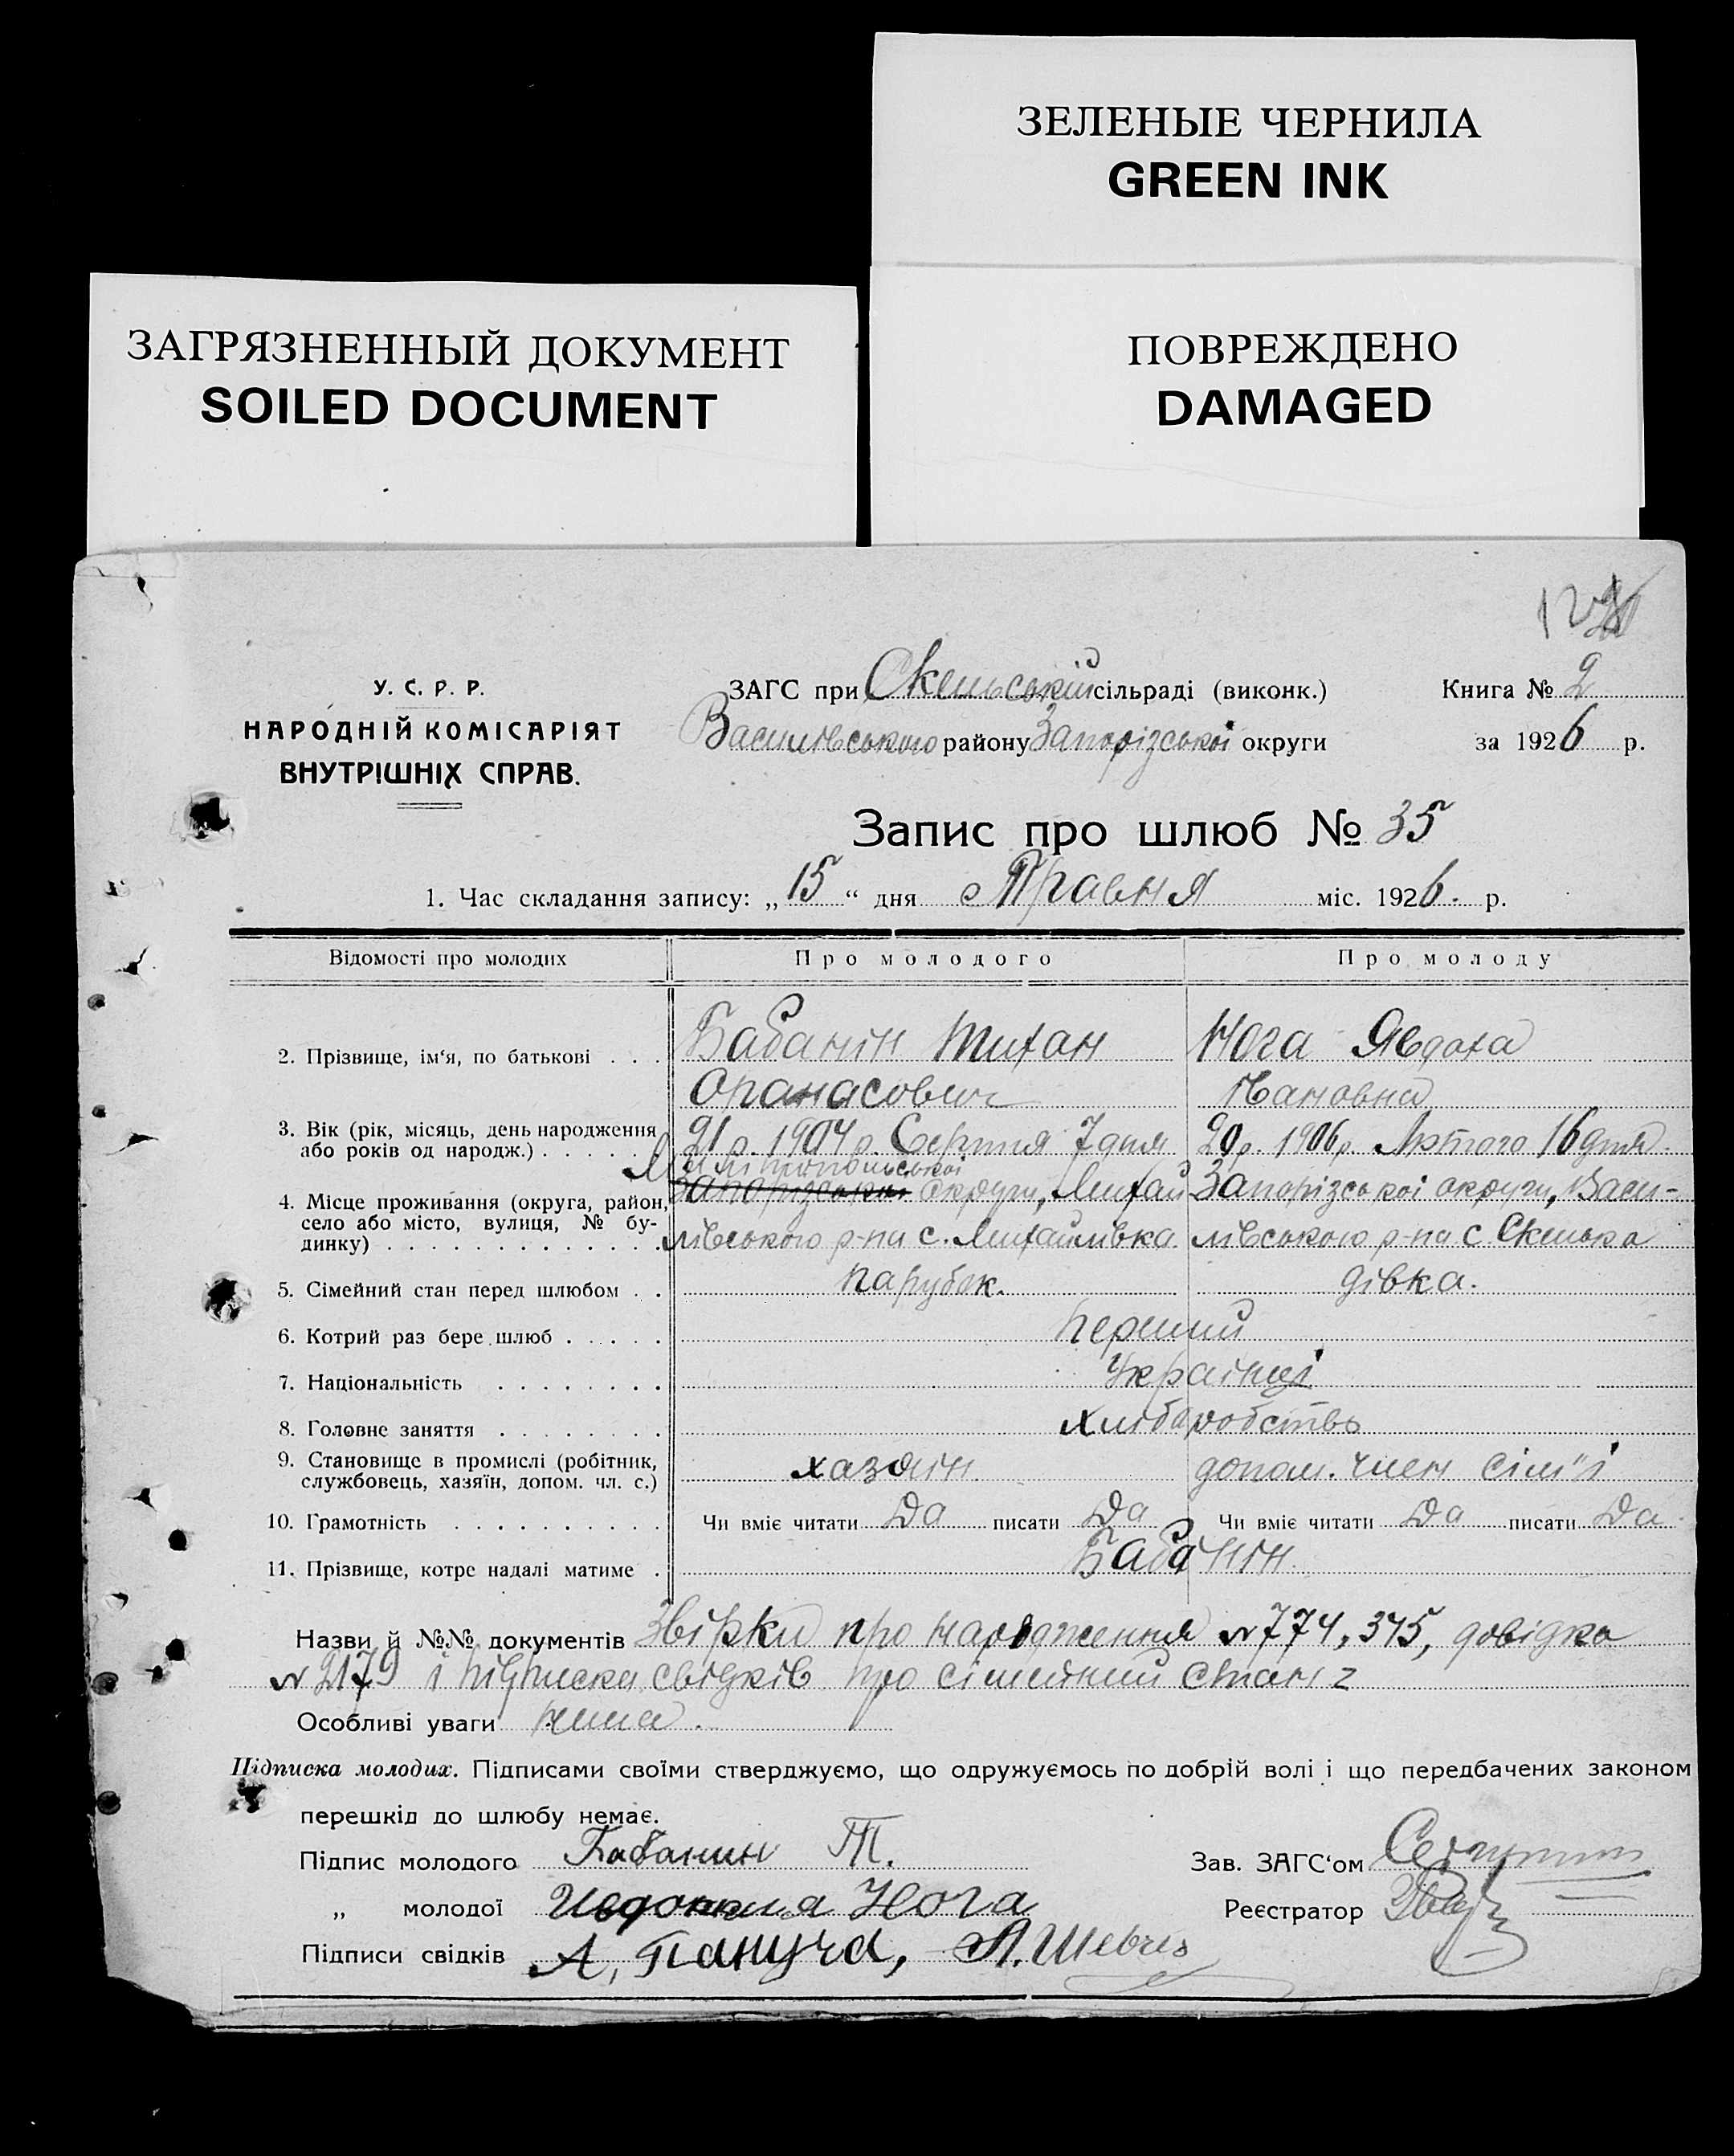 ЗЕЛЕНЫЕ ЧЕРНИЛА
GREEN INK
ЗАГРЯЗНЕННЫЙ ДОКУМЕНТ
SOILED DOCUMENT
ПОВРЕЖДЕНО
DAMAGED
У. С. Р. Р.
НАРОДНІЙ КОМІСАРІЯТ
ВНУТРІШНІХ СПРАВ.
ЗАГС при Скельській сільраді (виконк.)
Василівського району Запорізської округи
Книга № 2
за 1926 р.
Запис про шлюб № 35
1. Час складання запису: „15“ дня Травня міс. 1926. р.
Відомості про молодих Про молодого Про молоду
2. Прізвище, ім‘я, по батькові . . . Бабанін Тихан Нога Явдоха
Опанасович Пановна
3. Вік (рік, місяць, день народження 21 р. 1904 р. Серпня 7 дня 20 р. 1906 р. Лютого 16 дня.
або років од народж.) . . . . . Мелітопольської
4. Місце проживання (округа, район, Запорізської округи, Михай Запорізської округи, Васи-
село або місто, вулиця, № бу- лівського р-на с. Михайлівка. лівського р-на с. Скелька
динку) . . . . . . . . . . . . .
5. Сімейний стан перед шлюбом . . парубок. дівка.
6. Котрий раз бере шлюб . . . . . Перший
7. Національність . . . . . . . . Українці
8. Головне заняття . . . . . . . . хліборобство
9. Становище в промислі (робітник, хазяїн. допом. член сім'ї
службовець, хазяїн, допом. чл. с.)
10. Грамотність . . . . . . . . . . Чи вміє читати Да писати Да Чи вміє читати Да писати Да.
11. Прізвище, котре надалі матиме . Бабанін.
Назви й №№ документів Звірки про народження № 774, 345, довідка
№ 2179 і підписка свідків про сімейний стан
Особливі уваги нима.
Підписка молодих. Підписами своїми стверджуємо, що одружуємось по добрій волі і що передбачених законом
перешкід до шлюбу немає.
Підпис молодого Бабанин Т. Зав. ЗАГС‘ом
„ молодої Нога Реєстратор
Підписи свідків А. Пануча,